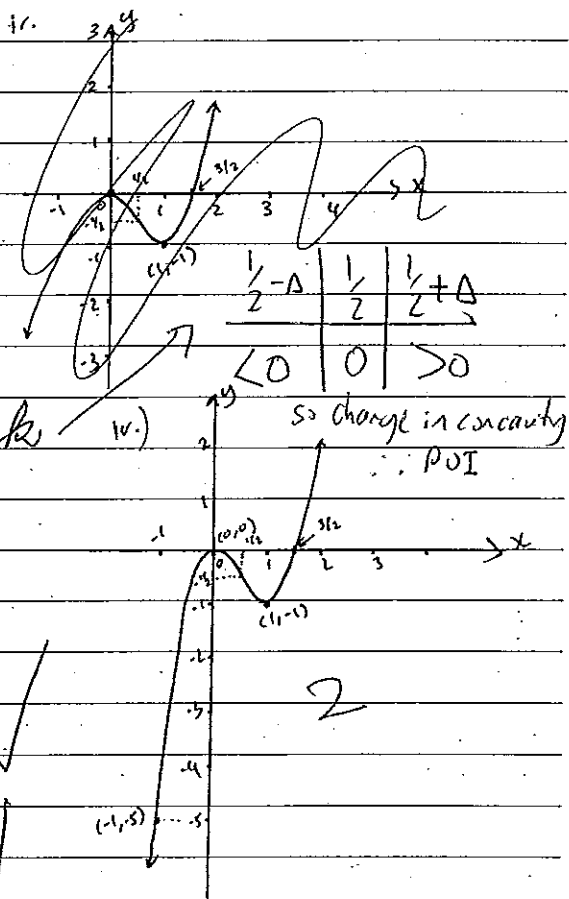 iv.
3 y
2
1
-1 0 1/2 1 3/2 2 3 4 5 x
-1/2
-1
(1,-1)
-2
-3
1/2-Δ | 1/2 | 1/2+Δ
<0 | 0 | >0
so change in concavity
∴ POI
iv.)
y
2
1
(0,0)
-1 0 1/2 1 3/2 2 3 x
-1/2
-1
(1,-1)
-2
-3
2
-4
(-1,-5) -5